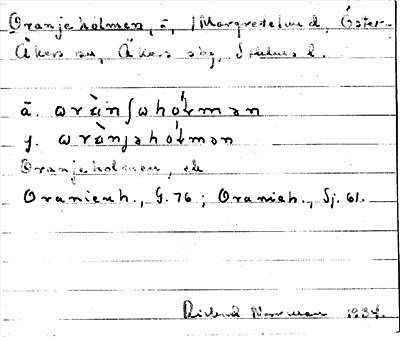 Oranjeholmen, ä, i Margretelund, Öster-
Åkers sn, Åkers skg, Sthlms l.
ä. ωrànʃωhólmən
y. ωrànjəhólmən
Oranjeholmen, ek
Oranienh., G. 76; Oranieh., Sj. 61.
Rickard Norrman 1934.